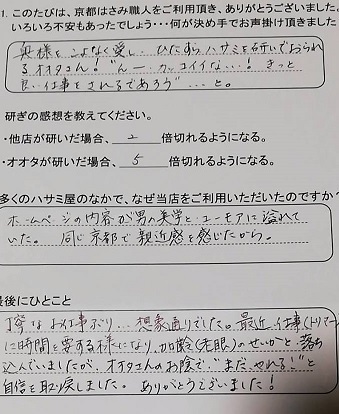 1. このたびは、京都はさみ職人をご利用頂き、ありがとうございました。
いろいろ不安もあったでしょう・・・何が決め手でお声掛け頂きました
奥様をこよなく愛し、ひたすらハサミを研いでおられ
るオオタさん!"んー、カッコイイな…! きっと
良い仕事をされるであろう"…と。
研ぎの感想を教えてください。
・他店が研いだ場合、 2 倍切れるようになる。
・オオタが研いだ場合、 5 倍切れるようになる。
多くのハサミ屋のなかで、なぜ当店をご利用いただいたのですか?
ホームページの内容が男の美学とユーモアに溢れて
いた。 同じ京都で親近感を感じたから。
最後にひとこと
丁寧なお仕事ぶり… 想象通りでした。最近、仕事(トリマー
に時間を要する様になり、加齢(老眼)のせいかと…落ち
込んでいましたが、オオタさんのお陰で"まだ、やれる!"と
自信を取り戻しました。 ありがとうございました!